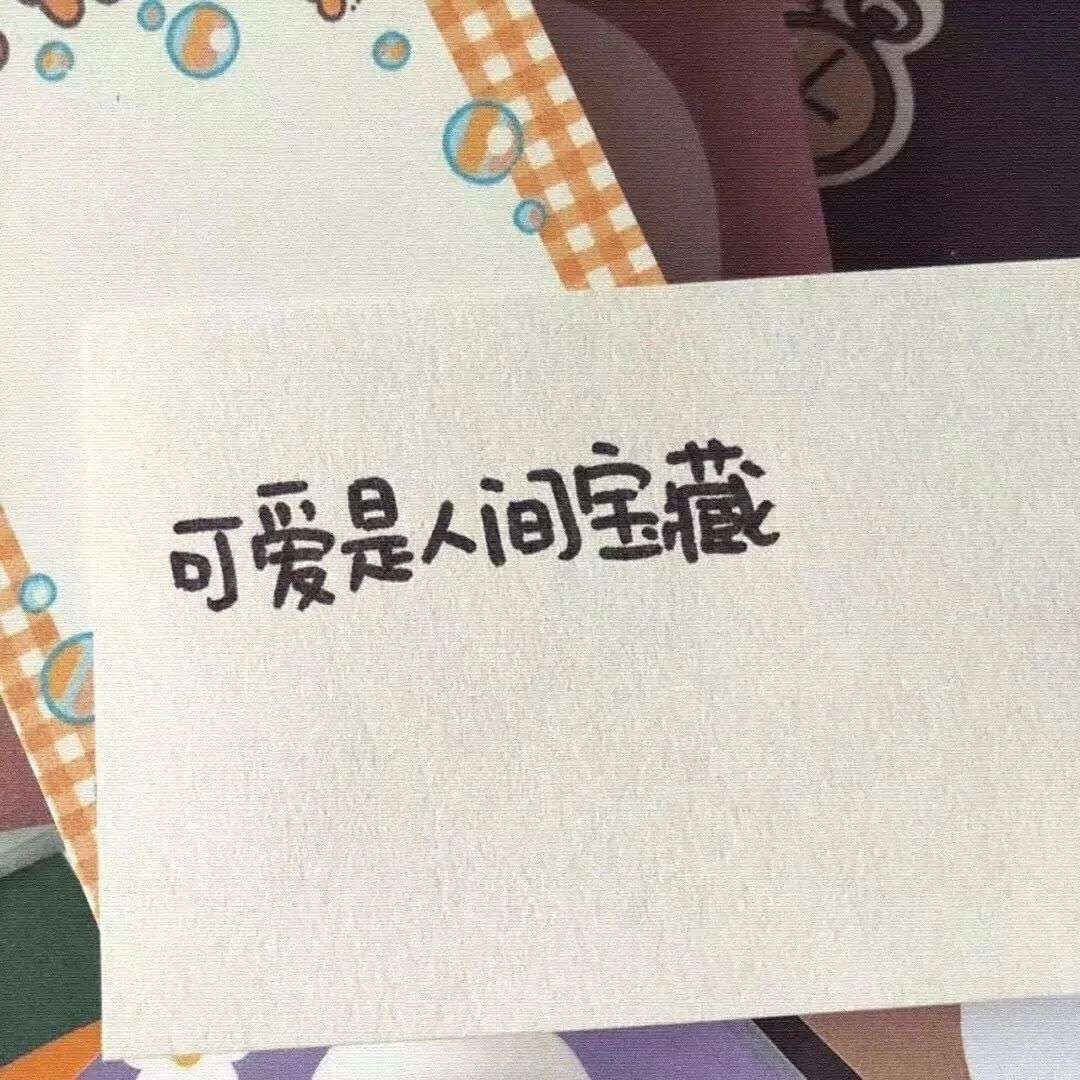 可爱是人间宝藏